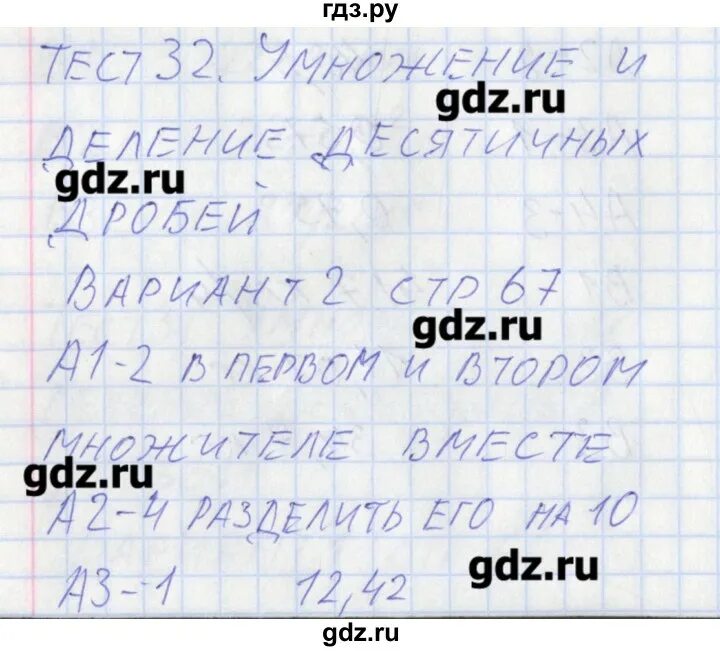 гдз.ру
ТЕСТ 32. УМНОЖЕНИЕ И
gdz.ru
ДЕЛЕНИЕ ДЕСЯТИЧНЫХ
gdz.ru
ДРОБЕЙ
ВАРИАНТ 2 СТР 67
gdz.ru
А1-2 В ПЕРВОМ И ВТОРОМ
МНОЖИТЕЛЕ ВМЕСТЕ
gdz.ru
А2-4 РАЗДЕЛИТЬ ЕГО НА 10
gdz.ru
А3-1 12,42
gdz.ru